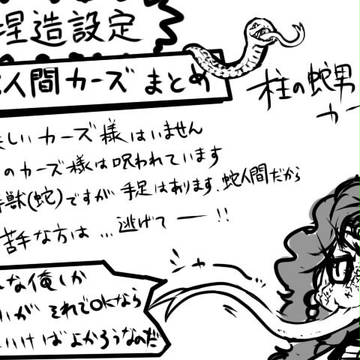 捏造設定
人間カーズ まとめ
柱の蛇男
カー
しいカーズ様はいません
のカーズ様は呪われています
獣(蛇)ですが 手足はあります、蛇人間だから
苦手な方は…逃げてー!!
な俺しか
いが それで〇になら
いけばよかろうなのだ